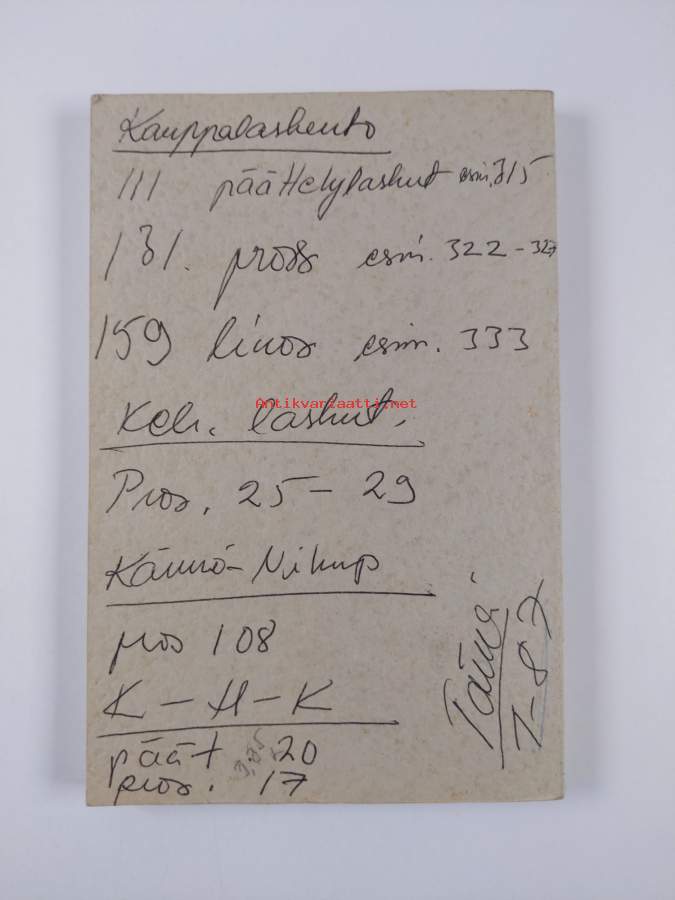 Kauppalaskento
111 päättelylaskut esim. 315
131. pros esim. 322 - 327
159 lin os esim. 333
Antikvariaatti.net
Keh. laskut.
Pros. 25 - 29
pros 108
K - H - K
päät 20
pros. 17
Tämä
7-87